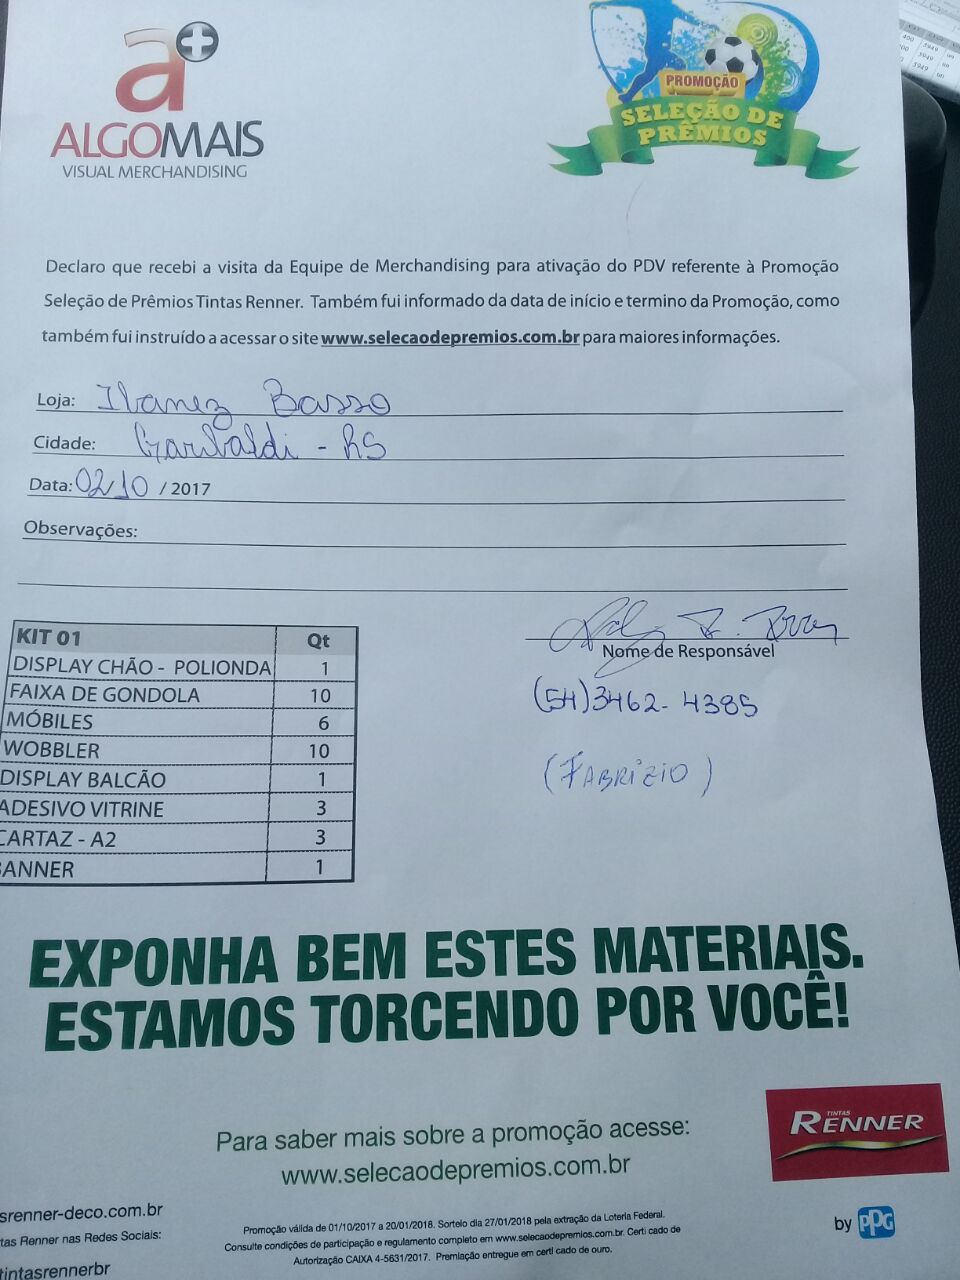 a+
ALGOMAIS
VISUAL MERCHANDISING
PROMOÇÃO
SELEÇÃO DE
PRÊMIOS
Declaro que recebi a visita da Equipe de Merchandising para ativação do PDV referente à Promoção
Seleção de Prêmios Tintas Renner. Também fui informado da data de início e termino da Promoção, como
também fui instruído a acessar o site www.selecaodepremios.com.br para maiores informações.
Loja: Ivanez Basso
Cidade: Garibaldi - RS
Data: 02/10 / 2017
Observações:
Nome de Responsável
(54)3462-4385
(FABRÍZIO)
KIT 01 Qt
DISPLAY CHÃO - POLIONDA 1
FAIXA DE GONDOLA 10
MÓBILES 6
WOBBLER 10
DISPLAY BALCÃO 1
ADESIVO VITRINE 3
CARTAZ - A2 3
BANNER 1
EXPONHA BEM ESTES MATERIAIS.
ESTAMOS TORCENDO POR VOCÊ!
TINTAS
RENNER
Para saber mais sobre a promoção acesse:
www.selecaodepremios.com.br
by PPG
srenner-deco.com.br
tas Renner nas Redes Sociais:
tintasrennerbr
Promoção válida de 01/10/2017 a 20/01/2018. Sorteio dia 27/01/2018 pela extração da Loteria Federal.
Consulte condições de participação e regulamento completo em www.selecaodepremios.com.br. Certi cado de
Autorização CAIXA 4-5631/2017. Premiação entregue em certi cado de ouro.